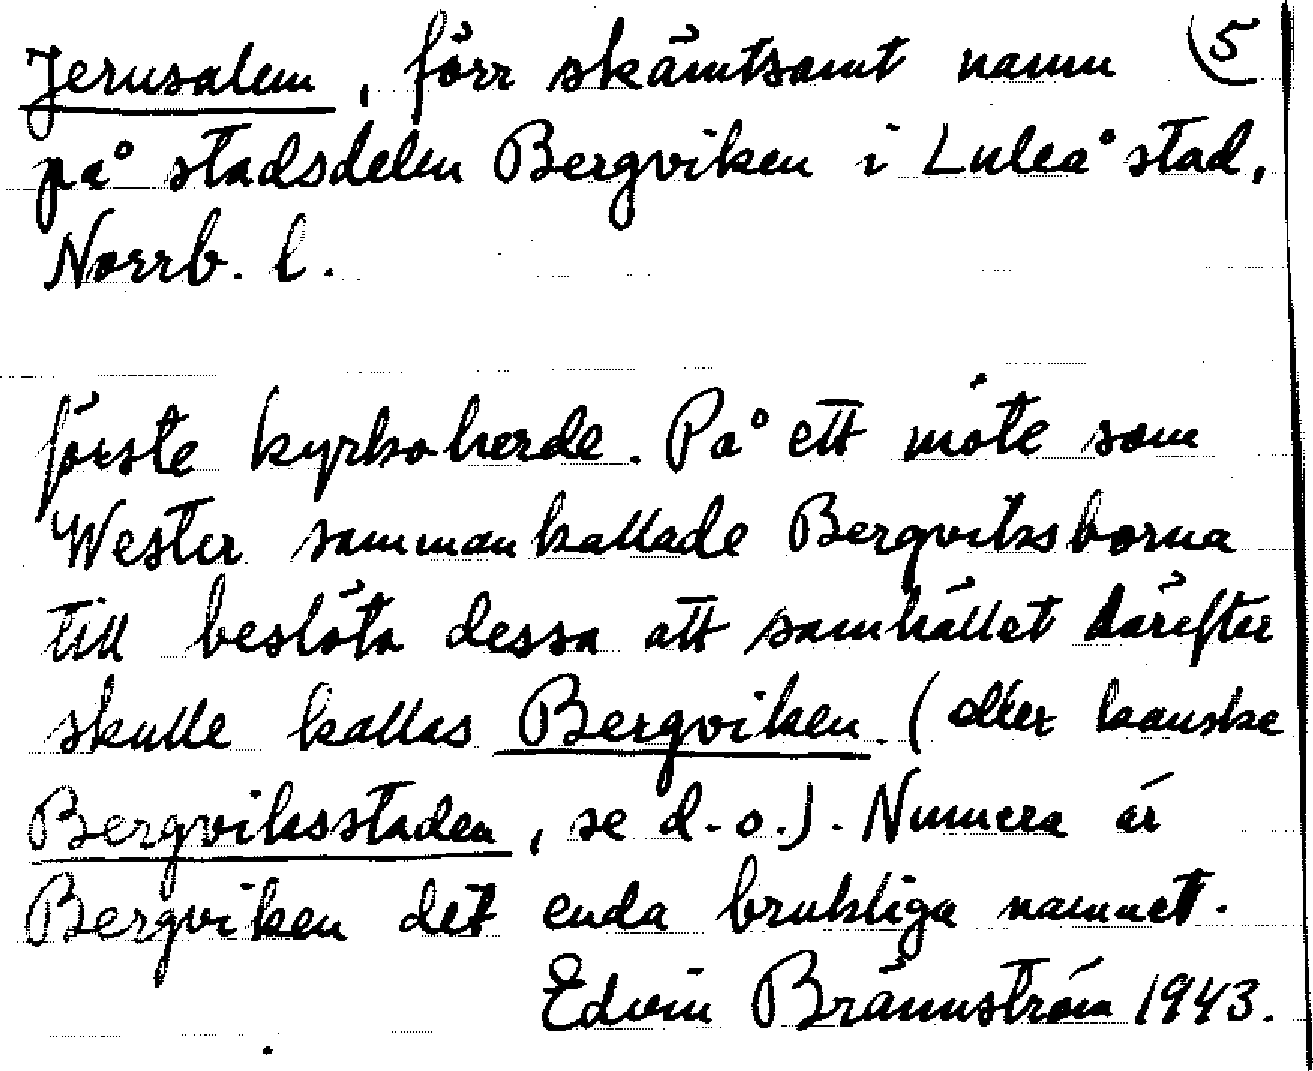 Jerusalem, förr skämtsamt namn 5
på stadsdelen Bergviken i Luleå stad,
Norrb. l.
förste kyrkoherde. På ett möte som
Wester sammankallade Bergviksborna
till beslöto dessa att samhället därefter
skulle kallas Bergviken. (eller kanske
Bergviksstaden, se d. o.). Numera är
Bergviken det enda brukliga namnet.
Edvin Brännström 1943.